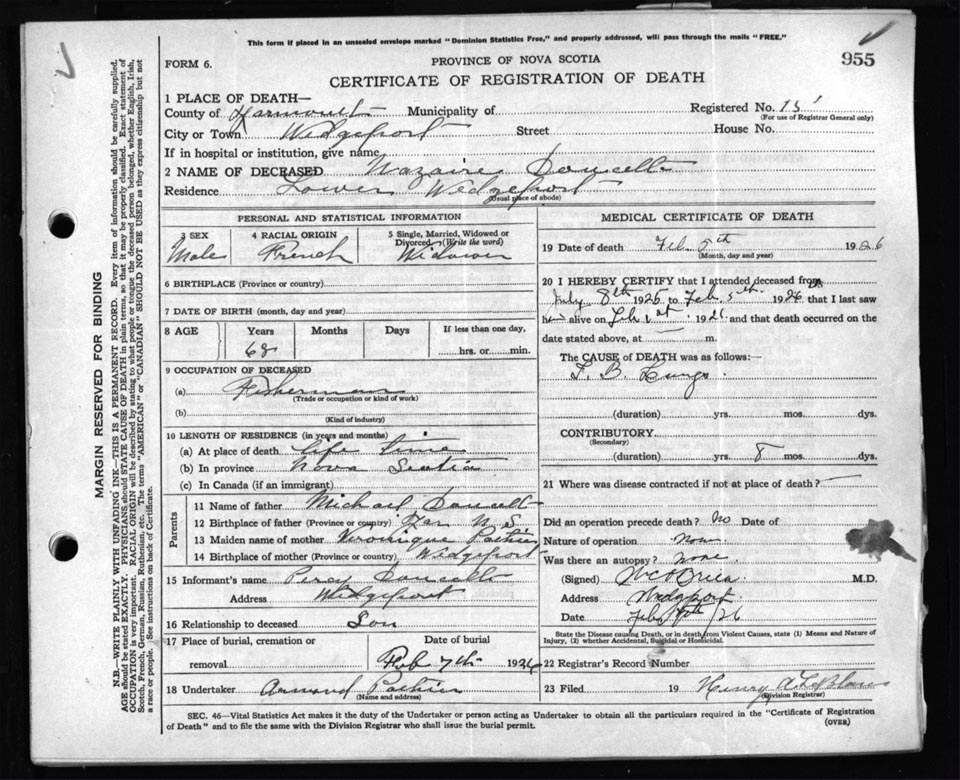 This form if placed in an unsealed envelope marked "Dominion Statistics Free," and property addressed, will pass through the mails "FREE."
FORM 6.
PROVINCE OF NOVA SCOTIA
955
CERTIFICATE OF REGISTRATION OF DEATH
1 PLACE OF DEATH—
County of Yarmouth Municipality of
Registered No. 15
(For use of Registrar General only)
City or Town Wedgeport Street House No.
If in hospital or institution, give name
2 NAME OF DECEASED Nazaire Doucette
Residence Lower Wedgeport
(Usual place of abode)
PERSONAL AND STATISTICAL INFORMATION
3 SEX Male
4 RACIAL ORIGIN French
5 Single, Married, Widowed or Divorced (Write the word) Widower
6 BIRTHPLACE (Province or country)
7 DATE OF BIRTH (month, day and year)
8 AGE Years Months Days If less than one day,
68 hrs. or min.
9 OCCUPATION OF DECEASED
(a) Fisherman
(Trade or occupation or kind of work)
(b)
(Kind of industry)
10 LENGTH OF RESIDENCE (in years and months)
(a) At place of death life time
(b) In province Nova Scotia
(c) In Canada (if an immigrant)
Parents
11 Name of father Michael Doucett
12 Birthplace of father (Province or country) N. S.
13 Maiden name of mother Veronique Pothier
14 Birthplace of mother (Province or country) Wedgeport
15 Informant's name Percy Doucette
Address Wedgeport
16 Relationship to deceased Son
17 Place of burial, cremation or removal
Date of burial
Feb 7th 1926
18 Undertaker Armand Pothier
(Name and address)
MEDICAL CERTIFICATE OF DEATH
19 Date of death Feb. 5th 1926
(Month, day and year)
20 I HEREBY CERTIFY that I attended deceased from
July 8th 1925 to Feb. 5th 1926 that I last saw
him alive on Feb 1st 1926 and that death occurred on the
date stated above, at m.
The CAUSE of DEATH was as follows:—
T. B. Lungs
(duration) yrs. mos. dys.
CONTRIBUTORY
(Secondary)
(duration) yrs. 8 mos. dys.
21 Where was disease contracted if not at place of death?
Did an operation precede death? No Date of
Nature of operation None
Was there an autopsy? None
(Signed) M.D.
Address Wedgeport
Date Feb /26
State the Disease causing Death, or in death from Violent Causes, state (1) Means and Nature of
Injury, (2) whether Accidental, Suicidal or Homicidal.
22 Registrar's Record Number
23 Filed 19 Henry A LeBlanc
(Division Registrar)
SEC. 46—Vital Statistics Act makes it the duty of the Undertaker or person acting as Undertaker to obtain all the particulars required in the "Certificate of Registration
of Death" and to file the same with the Division Registrar who shall issue the burial permit.
(OVER)
MARGIN RESERVED FOR BINDING
N.B.—WRITE PLAINLY WITH UNFADING INK—THIS IS A PERMANENT RECORD. Every item of information should be carefully supplied.
AGE should be stated EXACTLY. PHYSICIANS should STATE CAUSE OF DEATH in plain terms, so that it may be properly classified. Exact statement of
OCCUPATION is very important. RACIAL ORIGIN will be described by stating to what people or tongue the deceased person belonged, whether English, Irish,
Scotch, French, German, Russian, Ruthenian, etc. The terms "AMERICAN" or "CANADIAN" SHOULD NOT BE USED as they express citizenship but not
a race or people. See instructions on back of Certificate.